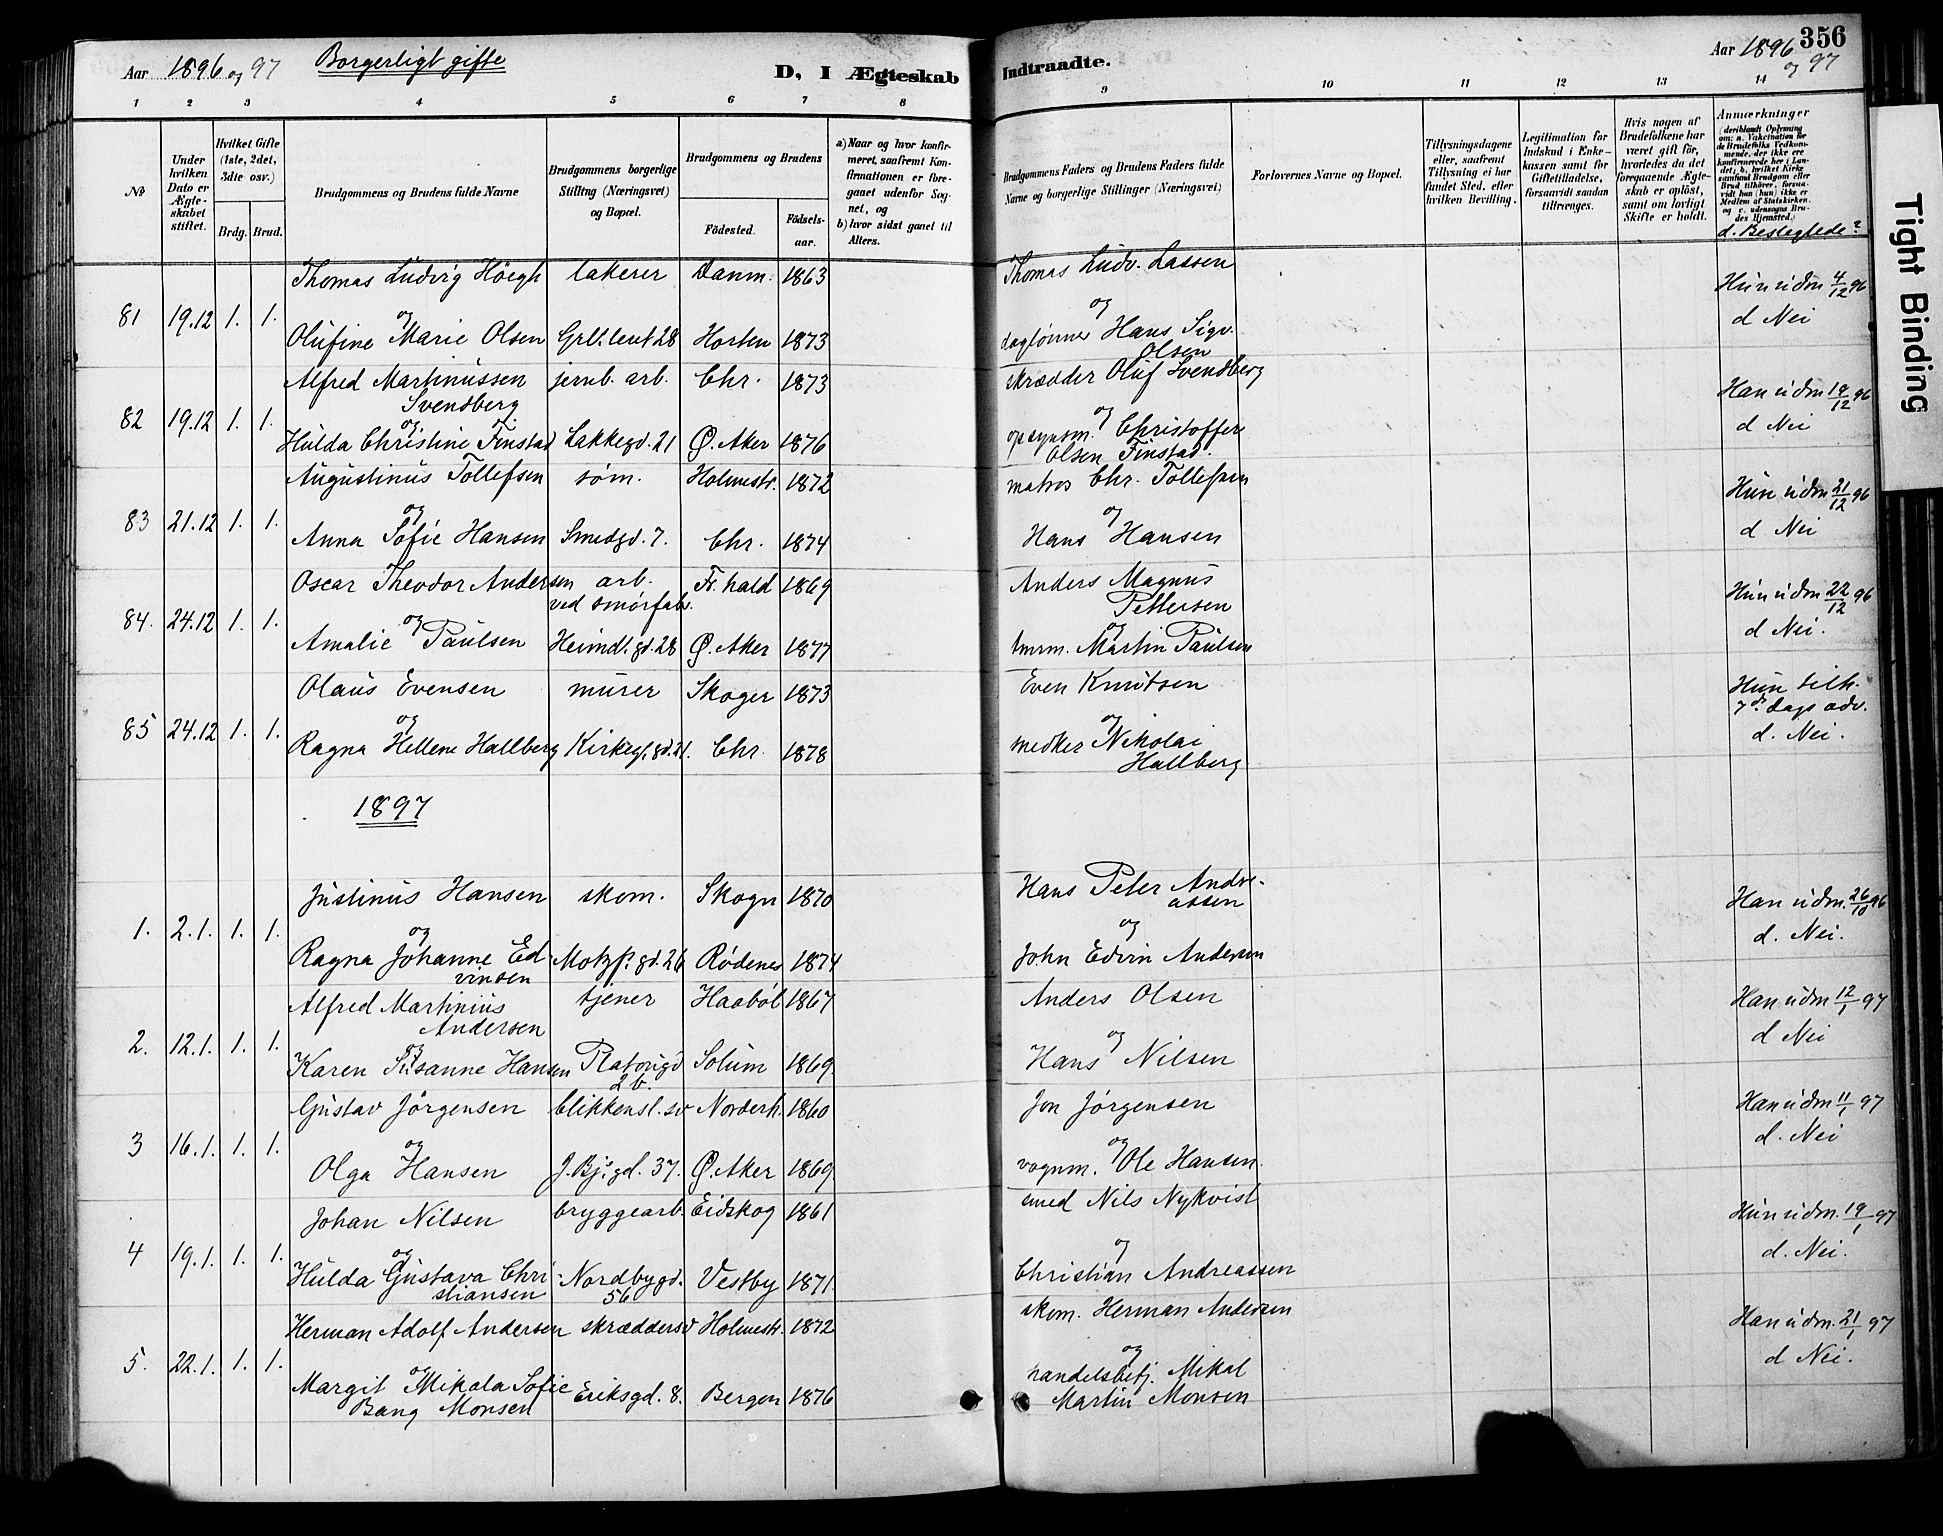 Aar 1896 og 97 Borgerligt gifte D, I Ægteskab
Indtraadte. Aar 1896 og 97 356
1 2 3 4 5 6 7 8
9 10 11 12 13 14
No
Under hvilken Dato er Ægteskabet stiftet.
Hvilket Gifte (1ste, 2det, 3die osv.)
Brdg. Brud.
Brudgommens og Brudens fulde Navne
Brudgommens borgerlige Stilling (Næringsvei) og Bopæl.
Brudgommens og Brudens
Födested. Födsels-aar.
a) Naar og hvor konfirmeret, saafremt Konfirmationen er foregaaet udenfor Sognet, og
b) hvor sidst gaaet til Alters.
Brudgommens Faders og Brudens Faders fulde Navne og borgerlige Stillinger (Næringsvei)
Forlovernes Navne og Bopæl.
Tillysningsdagene eller, saafremt Tillysning ei har fundet Sted, efter hvilken Bevilling.
Legitimation for Indskud i Enkekassen samt for Giftetilladelse, forsaavidt saadan tiltrænges.
Hvis nogen af Brudefolkene har været gift før, hvorledes da det foregaaende Ægteskab er oplöst, samt om lovligt Skifte er holdt.
Anmærkninger
(deriblandt Oplysning om: a. Vakcination for de Brudefolks Vedkommende, der ikke ere konfirmerede her i Landet; b. hvilket Kirkesamfund Brudgom eller Brud tilhörer, forsaavidt han (hun) ikke er Medlem af Statskirken, og c. udensogns Brudes Hjemsted.)
d. Beslegtede?
Thomas Ludvig Höegh lakerer Danm. 1863 Thomas Ludv. Lassen Hun udm 4/12 96
81 19.12 1. 1. og og d Nei
Olufine Marie Olsen Grl. leret 28 Horten 1873 daglönner Hans Sigv. Olsen
Alfred Martinussen jernb. arb. Chr. 1873 skrædder Oluf Svendberg
Svendberg Han udm 19/12 96
82 19.12 1. 1. og og d Nei
Hulda Christine Finstad Lakkegd. 21 Ø. Aker 1876 opsynsm. Christoffer Olsen Finstad.
Augustinus Tollefsen søm. Holmestr. 1872 matros Chr. Tollefsen Hun udm 21/12 96
83 21.12 1. 1. og og d Nei
Anna Sofie Hansen Smedgd. 7. Chr. 1874 Hans Hansen
Oscar Theodor Andersen arb. Fr. hald 1869 Anders Magnus
ved smörfab. Pettersen Hun udm 22/12 96
84. 24.12 1. 1. og og d Nei.
Amalie Paulsen Heimdl. gd. 28 Ø. Aker 1877 tmrm. Martin Paulsen
Olaus Evensen murer Skoger 1873 Even Knutsen Hun tilh.
7de dags adv.
85 24.12 1. 1. og og d. Nei.
Ragna Hellene Hallberg Kirkeg. gd. 21. Chr. 1878 Nikolai
Hallberg
1897
Justinus Hansen skom. Skogn 1870 Hans Peter Andreassen Han udm. 26/10 96
1. 2.1. 1. 1. og og d. Nei.
Ragna Johanne Edvinsen Motzf. gd. 26 Rødenes 1874 John Edvin Andersen
Alfred Martinius tjener Haabøl 1867 Anders Olsen Han udm 12/1 97
Andersen d Nei
2. 12.1. 1. 1. og og
Karen Susanne Hansen Platougd 2b. Solum 1869. Hans Nilsen
Gustav Jörgensen blikkensl. sv Norderh. 1860 Jon Jörgensen Han udm 11/1 97
3 16.1. 1. 1. og og d. Nei
Olga Hansen J. Bj.s gd. 37. Ø. Aker 1869. vognm. Ole Hansen.
Johan Nilsen bryggearb. Eidskog 1861 smed Nils Nykvist Hun udm. 19/1 97
4 19.1. 1. 1. og og d. Nei.
Hulda Gustava Christiansen Nordbygd. 56 Vestby 1871. Christian Andreassen
Herman Adolf Andersen skræddersv Holmestr. 1872 skom. Herman Andersen Han udm. 21/1 97
5. 22.1. 1. 1. og og d Nei.
Margit Mikala Sofie Eriksgd. 8. Bergen 1876 handelsbetj. Mikal
Bang Monsen Martin Monsen
Tight Binding